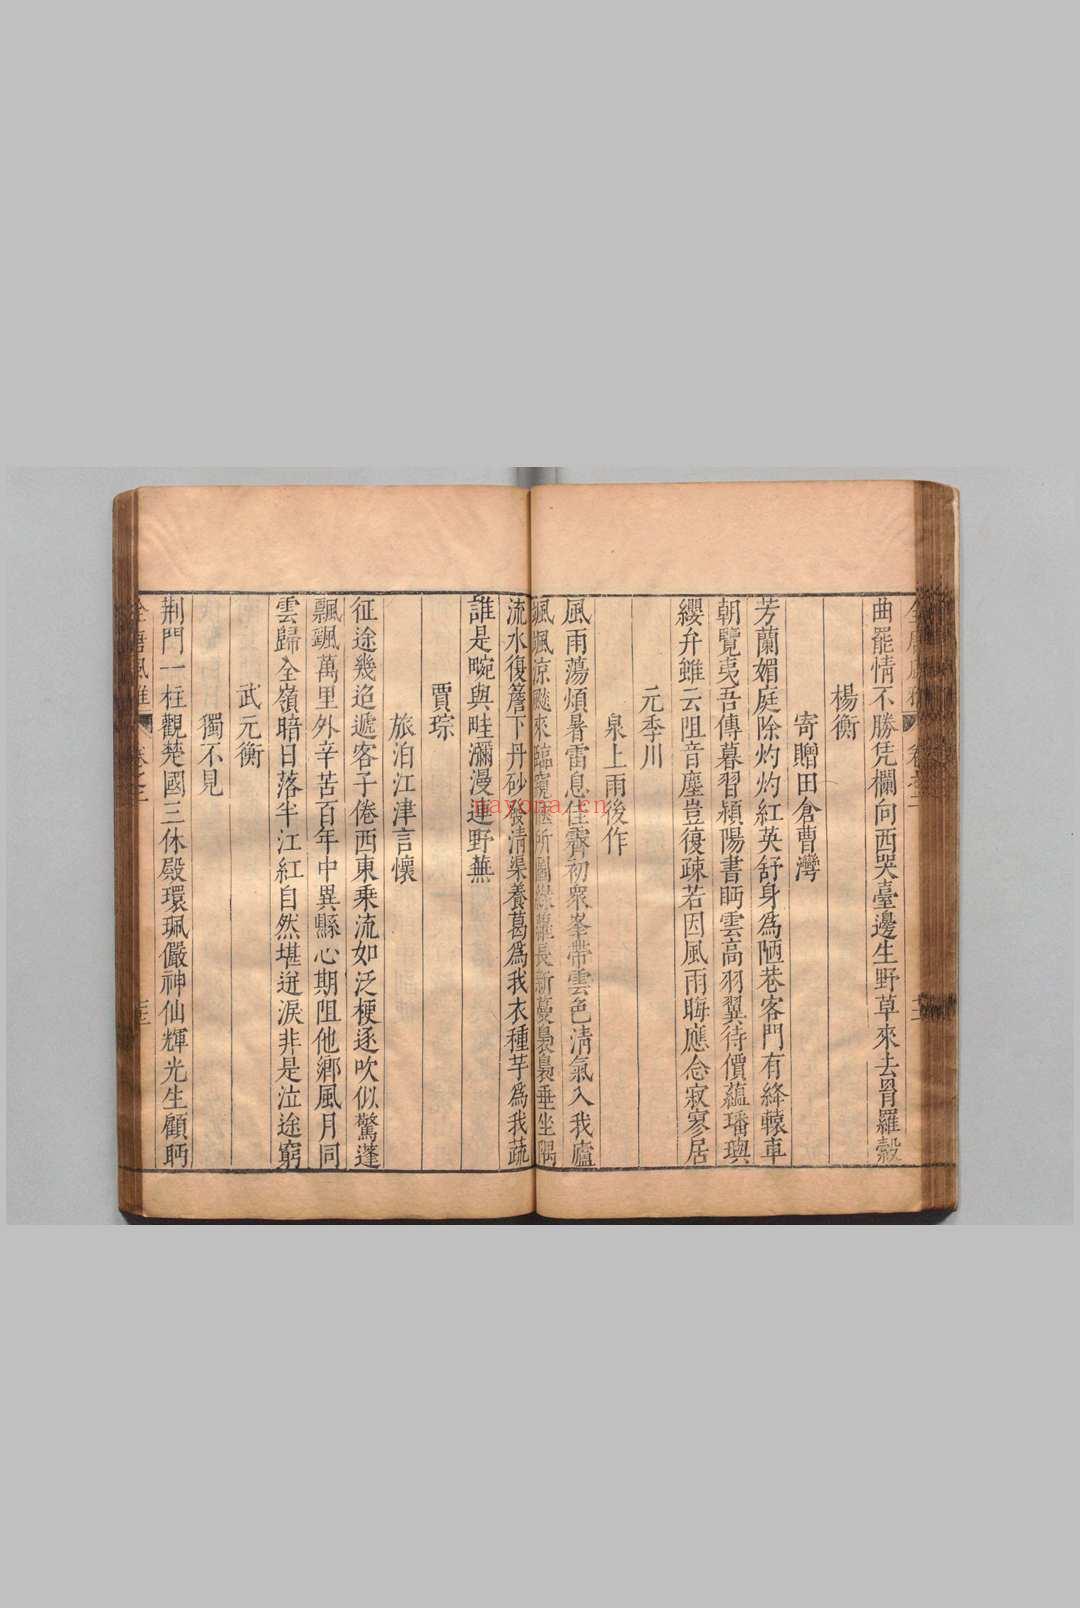 曲罷情不勝凭欄向西哭臺邊生野草來去罥羅縠
楊衡
寄贈田倉曹灣
芳蘭媚庭除灼灼紅英舒身為陋巷客門有絳轅車
朝覽夷吾傳暮習潁陽書眄雲高羽翼待價蘊璠璵
纓弁雖云阻音塵豈復疎若因風雨晦應念寂寥居
元季川
泉上雨後作
風雨蕩煩暑雷息佳霽初衆峯帶雲色清氣入我廬
颯颯凉飈來臨窺愜所圖綠蘿長新蔓裊裊垂坐隅
流水復簷下丹砂發清渠養葛為我衣種芋為我蔬
誰是畹與畦瀰漫連野蕪
賈琮
旅泊江津言懷
征途幾迢遞客子倦西東乘流如泛梗逐吹似驚蓬
飄颻萬里外辛苦百年中異縣心期阻他鄉風月同
雲歸全嶺暗日落半江紅自然堪迸淚非是泣途窮
武元衡
獨不見
荆門一柱觀楚國三休殿環珮儼神仙輝光生顧眄
全唐風雅
卷之二
nayona.cn